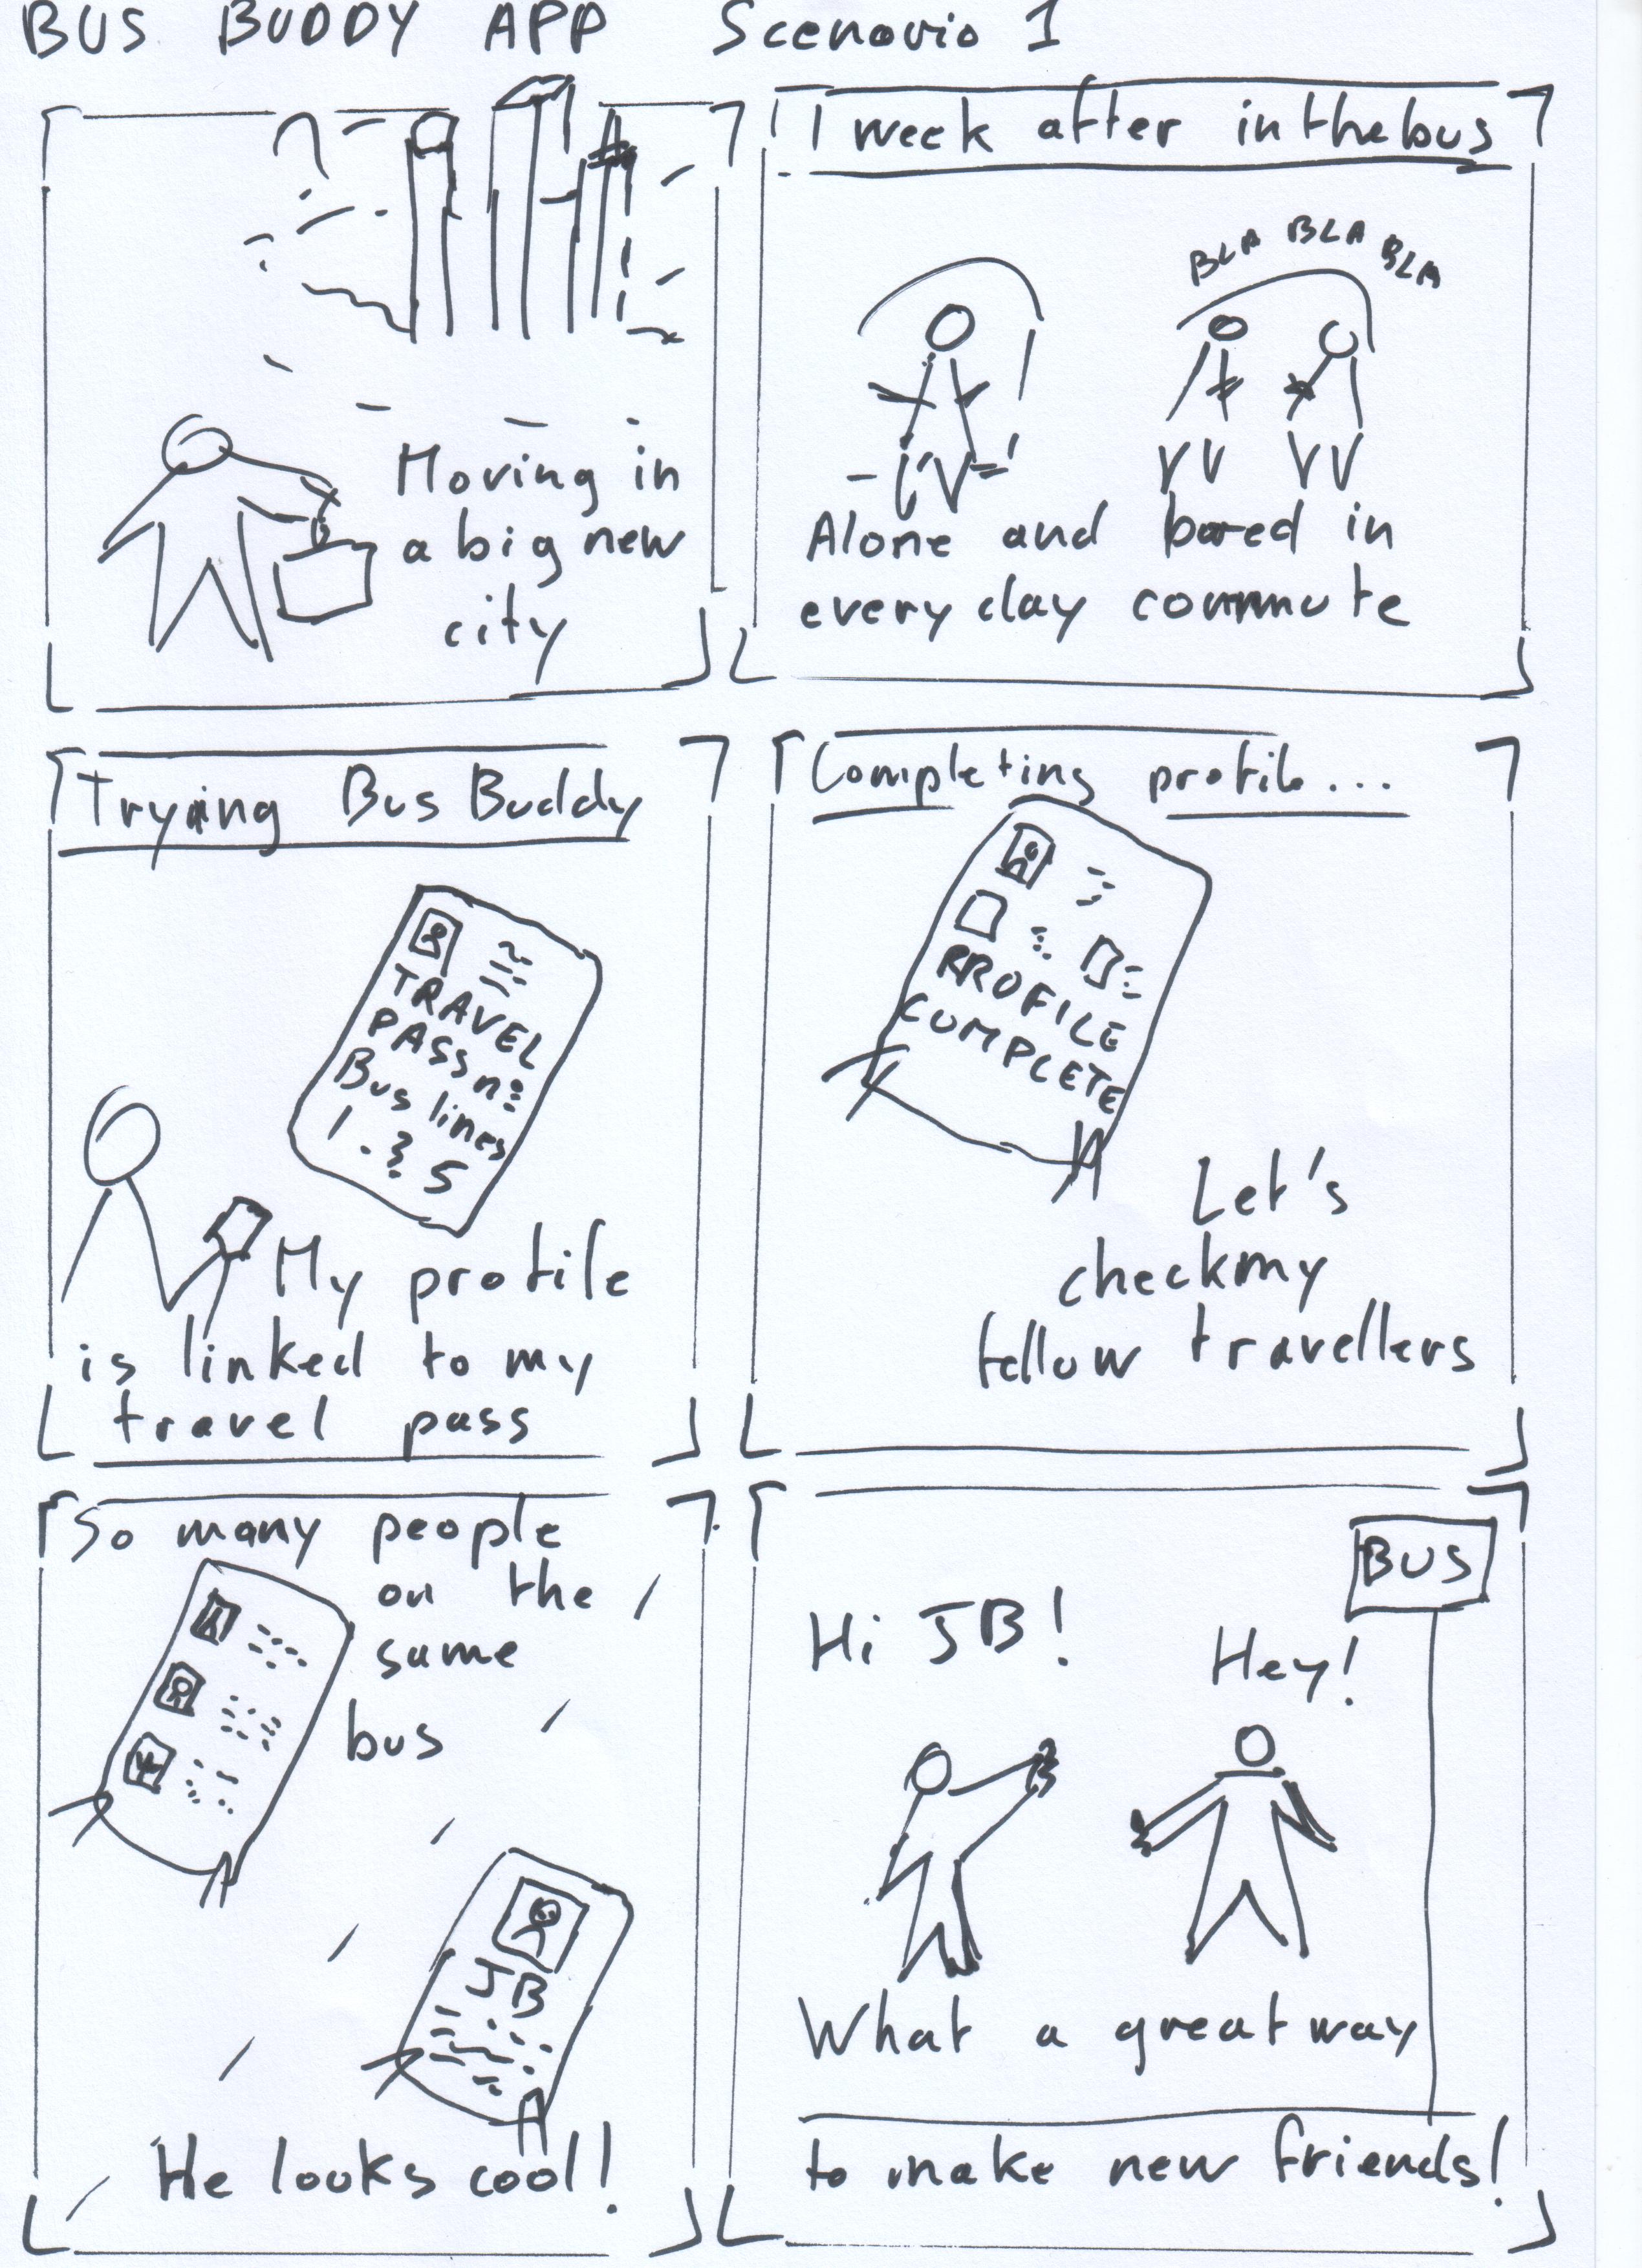 BUS BUDDY APP Scenario 1
Moving in
a big new
city
1 week after in the bus
BLA BLA BLA
Alone and bored in
every day commute
Trying Bus Buddy
TRAVEL
PASS n°
Bus lines
1 . 3 5
My profile
is linked to my
travel pass
Completing profile...
PROFILE
COMPLETE
Let's
check my
fellow travellers
So many people
on the
same
bus
JB
He looks cool!
BUS
Hi JB!
Hey!
What a great way
to make new friends!